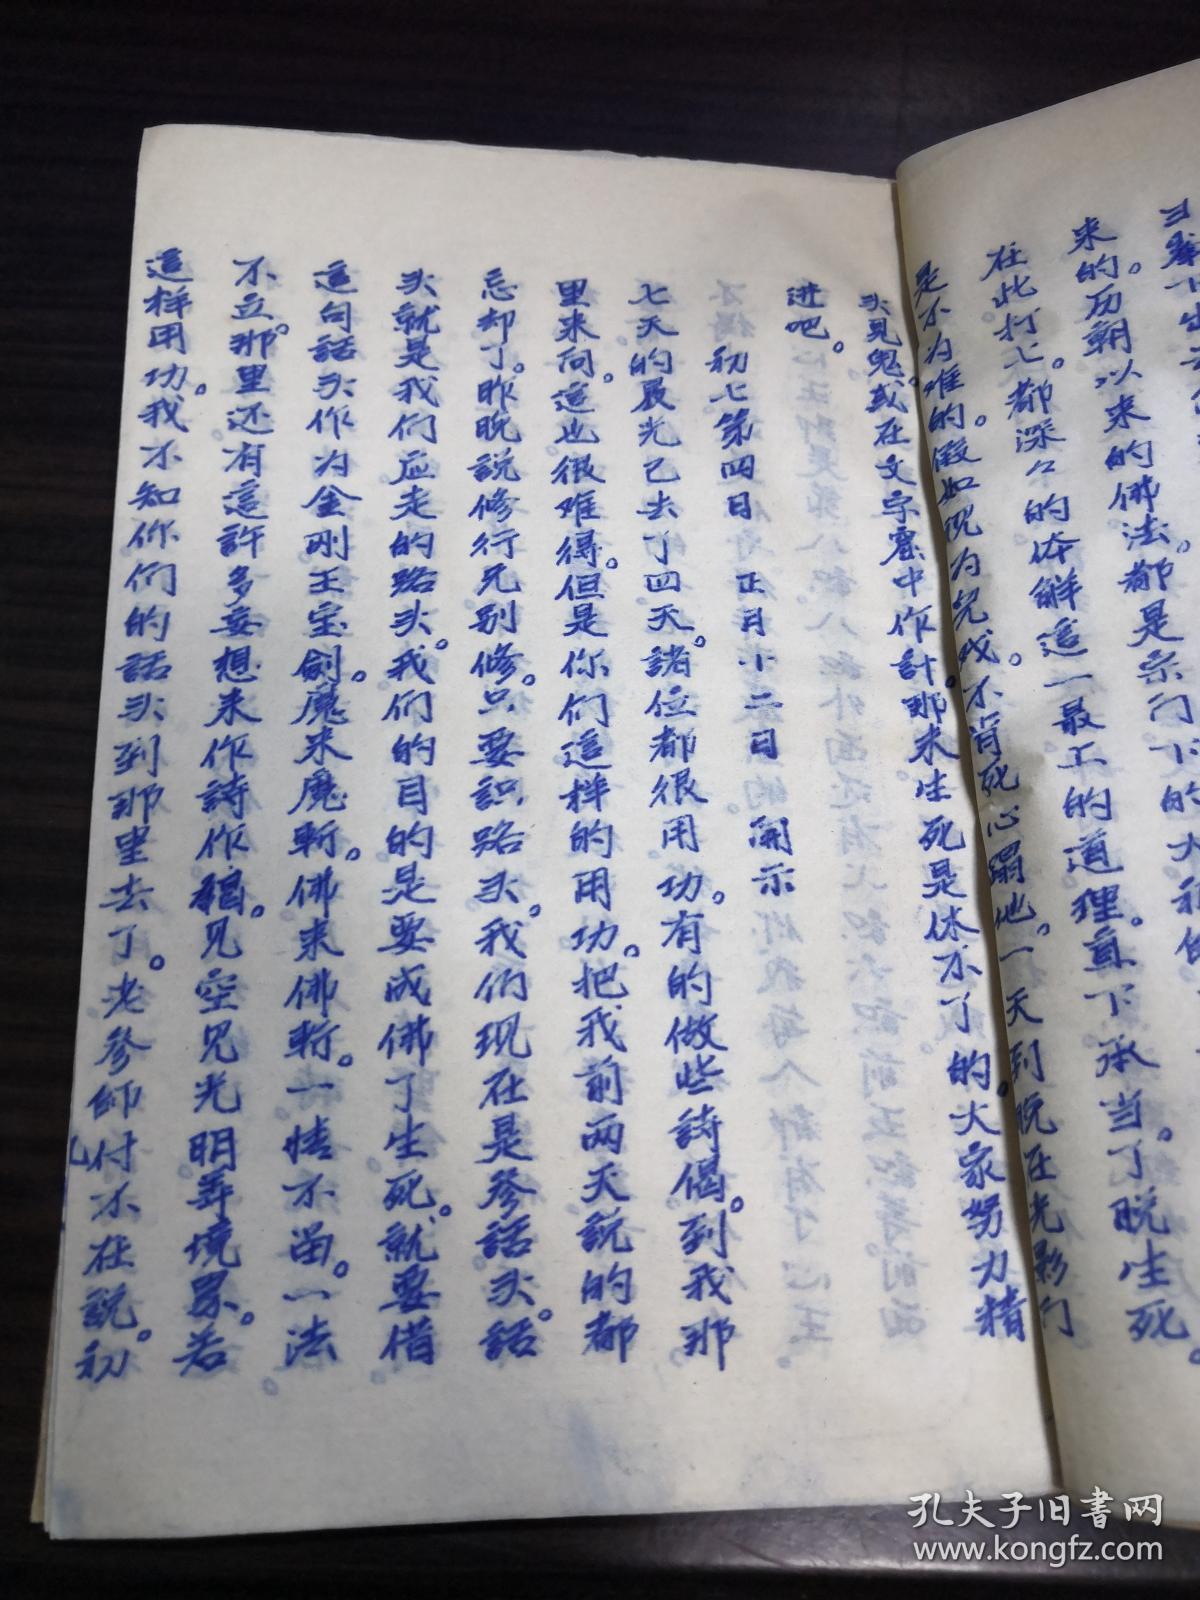 来的。历朝以来的佛法。都是宗门下的大
在此打七。都深々的体解這一最上的道理。直下承当。了脱生死。
是不为难的。假如視为兒戏。不肯死心蹋他。一天到晚在光影门
头見鬼。或在文字窟中作計。那末生死是休不了的。大家努力精
进吧。
初七第四日 正月十二日 開示
七天的晨光已去了四天。諸位都很用功。有的做些詩偈。到我那
里来问。這也很难得。但是你们這样的用功。把我前两天説的都
忘却了。昨晚説修行无别修。只要識路头。我们现在是參話头。話
头就是我们应走的路头。我们的目的是要成佛了生死。就要借
這句話头作为金刚王宝劍。魔来魔斬。佛来佛斬。一情不留。一法
不立。那里还有這許多妄想来作詩作稿。见空见光明等境界。若
這样用功。我不知你们的話头到那里去了。老參師付不在説。初
孔夫子旧书网
www.kongfz.com